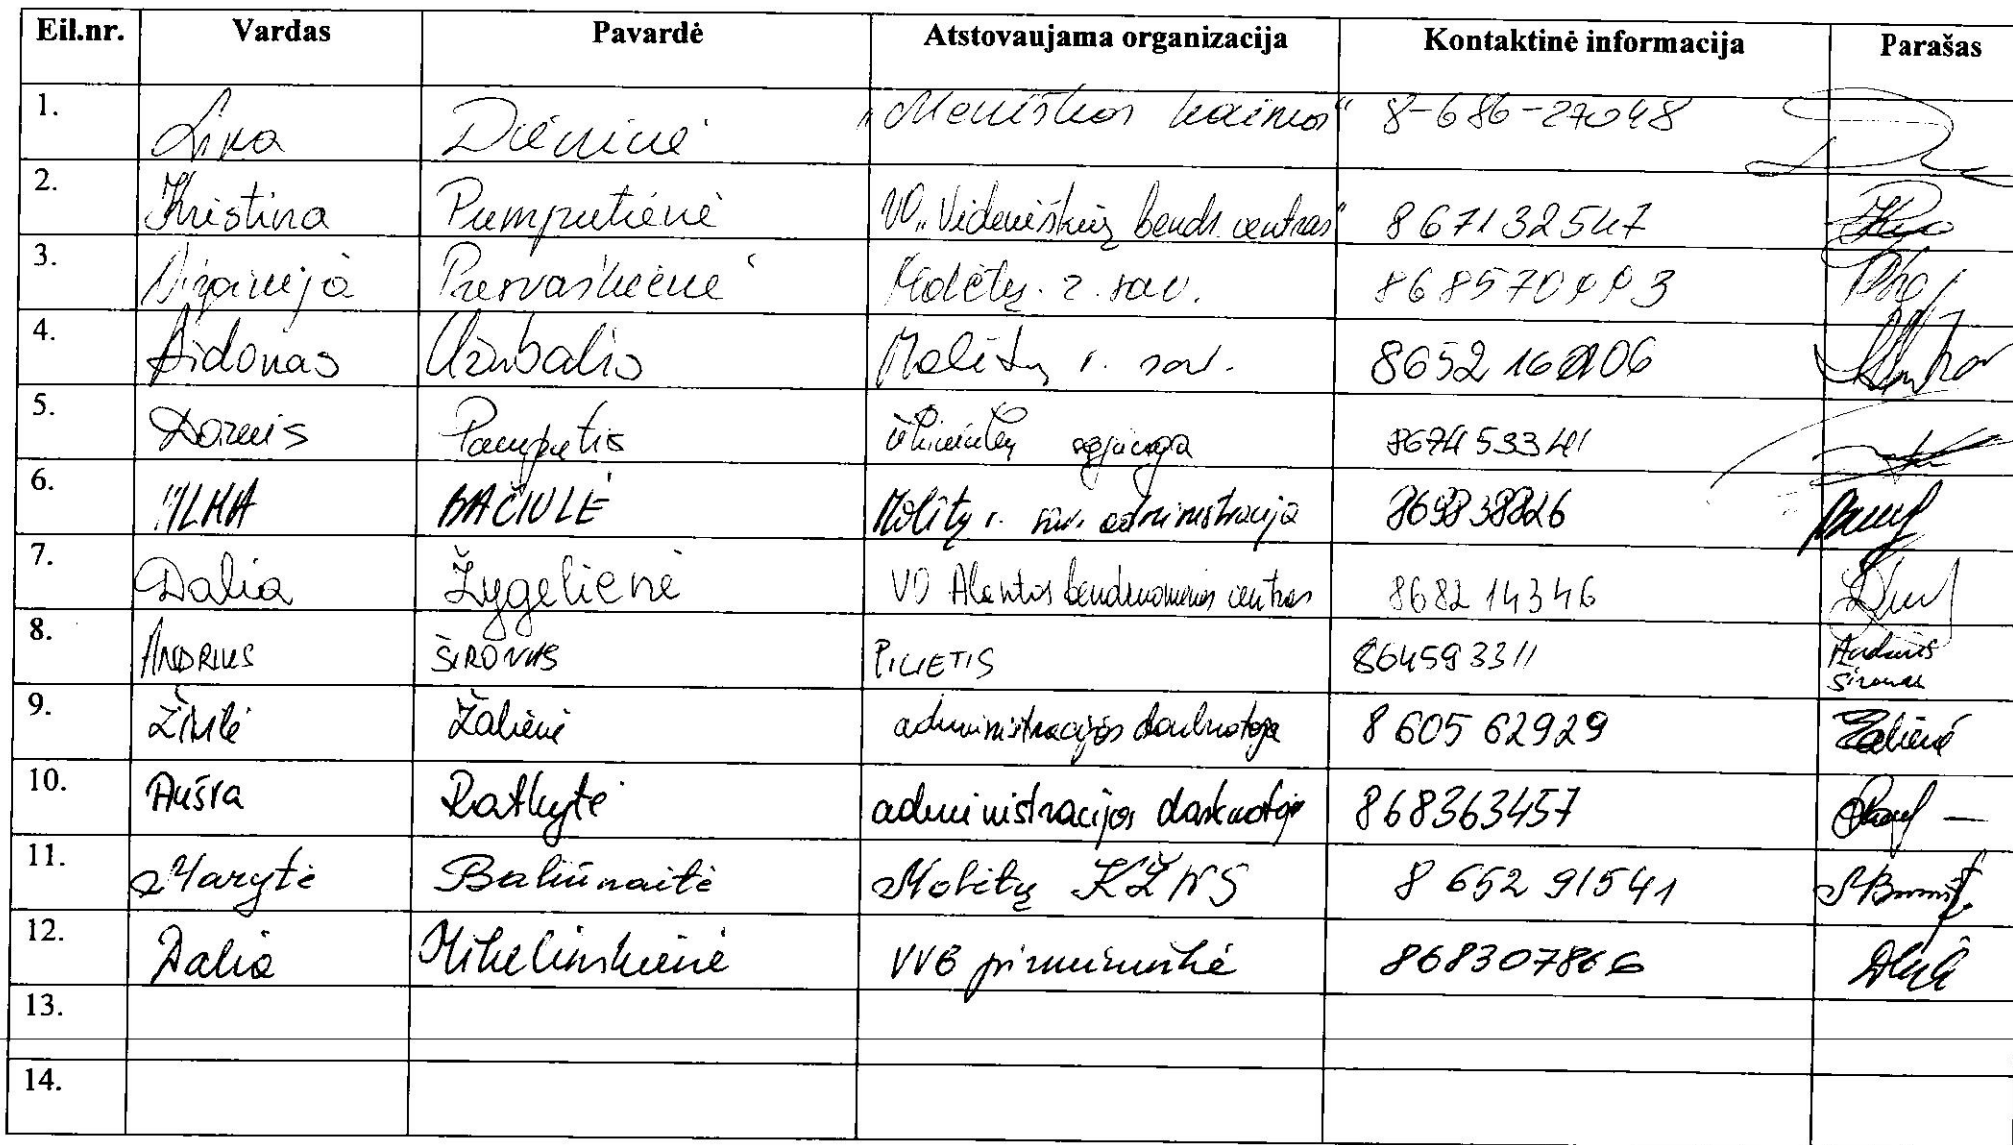 Eil.nr. Vardas Pavardė Atstovaujama organizacija Kontaktinė informacija Parašas
1. Lina Dieninė „Meniškos kaimos“ 8-686-27048
2. Kristina Pumputienė VO „Videniškių bendr. centras“ 867132547
3. Pu Molėtų r. sav.
4. Aidonas Ažubalis Molėtų r. sav.
5. Pumputis 867453341
6. VILMA BAČIULĖ Molėtų r. sav. administracija
7. Dalia Žygelienė VO Alantos bendruomenės centras 868214346
8. ANDRIUS ŠIRONAS PILIETIS 864593311 Andrius Šironas
9. Živilė Žalienė administracijos darbuotoja 8 605 62929 Žalienė
10. Aušra Ratkytė administracijos darbuotoja 868363457
11. Marytė Baliūnaitė Molėtų KŽNS 8 652 91541
12. Dalia Mikelinskienė VVB pirmininkė 868307866
13.
14.